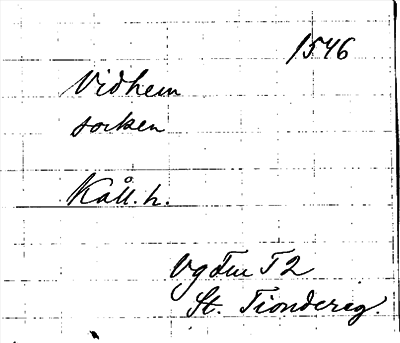 1546
Vidhem
socken
Kåll. h.
Vg Fm T2
St. Tiondereg.